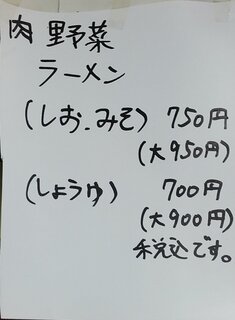 肉 野菜
ラーメン
(しお.みそ) 750円
(大950円)
(しょうゆ) 700円
(大900円)
税込です。